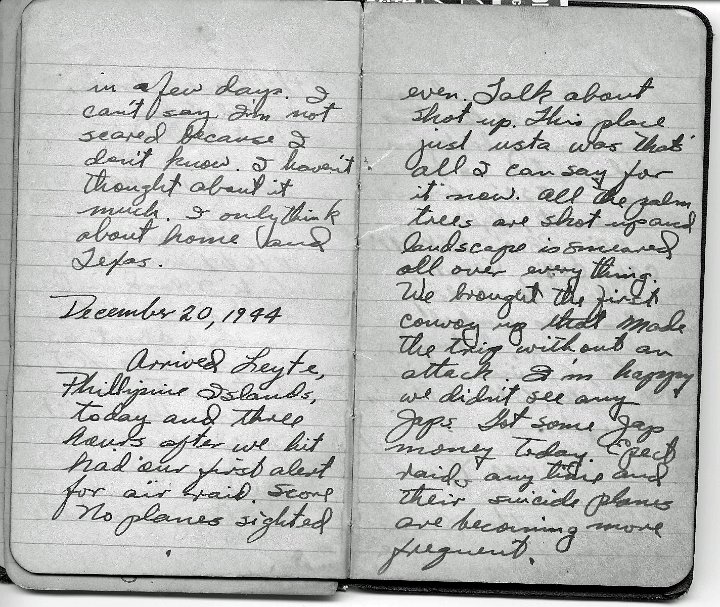 in a few days. I
can't say I'm not
scared because I
don't know. I haven't
thought about it
much. I only think
about home and
Texas.
December 20, 1944
Arrived Leyte,
Phillipine Islands,
today and three
hours after we hit
had our first alert
for air raid. Score
no planes sighted
even. Talk about
shot up. This place
just usta was "that's"
all I can say for
it now. All the palm
trees are shot up and
landscape is smeared
all over everything.
We brought the first
convoy up that made
the trip without an
attack. I'm happy
we didn't see any
Japs. Got some Jap
money today. Expect
raids any time and
their suicide planes
are becoming more
frequent.